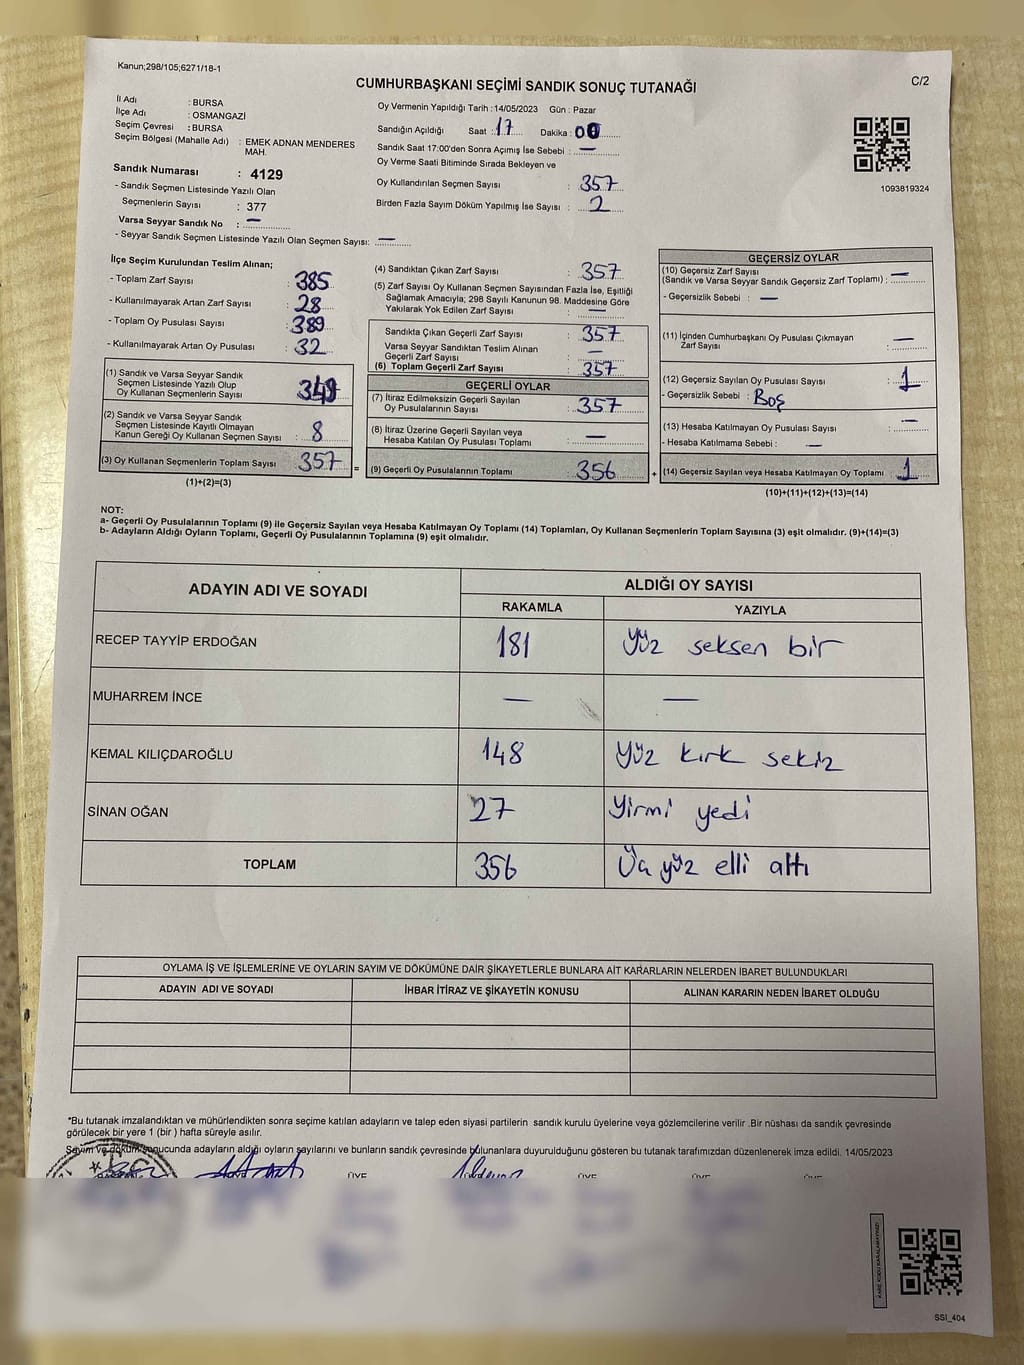 Kanun;298/105;6271/18-1
C/2
CUMHURBAŞKANI SEÇİMİ SANDIK SONUÇ TUTANAĞI
İl Adı : BURSA
İlçe Adı : OSMANGAZİ
Seçim Çevresi : BURSA
Seçim Bölgesi (Mahalle Adı) : EMEK ADNAN MENDERES
MAH.
Sandık Numarası : 4129
- Sandık Seçmen Listesinde Yazılı Olan
Seçmenlerin Sayısı : 377
Varsa Seyyar Sandık No : —
- Seyyar Sandık Seçmen Listesinde Yazılı Olan Seçmen Sayısı: —
Oy Vermenin Yapıldığı Tarih :14/05/2023 Gün : Pazar
Sandığın Açıldığı Saat : 17 Dakika : 00
Sandık Saat 17:00'den Sonra Açımış İse Sebebi : —
Oy Verme Saati Bitiminde Sırada Bekleyen ve
Oy Kullandırılan Seçmen Sayısı : 357
Birden Fazla Sayım Döküm Yapılmış İse Sayısı : 2
1093819324
İlçe Seçim Kurulundan Teslim Alınan;
- Toplam Zarf Sayısı : 385
- Kullanılmayarak Artan Zarf Sayısı : 28
- Toplam Oy Pusulası Sayısı : 389
- Kullanılmayarak Artan Oy Pusulası : 32
(1) Sandık ve Varsa Seyyar Sandık
Seçmen Listesinde Yazılı Olup
Oy Kullanan Seçmenlerin Sayısı : 349
(2) Sandık ve Varsa Seyyar Sandık
Seçmen Listesinde Kayıtlı Olmayan
Kanun Gereği Oy Kullanan Seçmen Sayısı : 8
(3) Oy Kullanan Seçmenlerin Toplam Sayısı : 357 =
(1)+(2)=(3)
(4) Sandıktan Çıkan Zarf Sayısı : 357
(5) Zarf Sayısı Oy Kullanan Seçmen Sayısından Fazla İse, Eşitliği
Sağlamak Amacıyla; 298 Sayılı Kanunun 98. Maddesine Göre
Yakılarak Yok Edilen Zarf Sayısı : —
Sandıkta Çıkan Geçerli Zarf Sayısı : 357
Varsa Seyyar Sandıktan Teslim Alınan
Geçerli Zarf Sayısı : —
(6) Toplam Geçerli Zarf Sayısı : 357
GEÇERLİ OYLAR
(7) İtiraz Edilmeksizin Geçerli Sayılan
Oy Pusulalarının Sayısı : 357
(8) İtiraz Üzerine Geçerli Sayılan veya
Hesaba Katılan Oy Pusulası Toplamı : —
(9) Geçerli Oy Pusulalarının Toplamı 356 +
GEÇERSİZ OYLAR
(10) Geçersiz Zarf Sayısı
(Sandık ve Varsa Seyyar Sandık Geçersiz Zarf Toplamı) : —
- Geçersizlik Sebebi : —
(11) İçinden Cumhurbaşkanı Oy Pusulası Çıkmayan
Zarf Sayısı : —
(12) Geçersiz Sayılan Oy Pusulası Sayısı : 1
- Geçersizlik Sebebi : Boş
(13) Hesaba Katılmayan Oy Pusulası Sayısı : —
- Hesaba Katılmama Sebebi : —
(14) Geçersiz Sayılan veya Hesaba Katılmayan Oy Toplamı : 1
(10)+(11)+(12)+(13)=(14)
NOT:
a- Geçerli Oy Pusulalarının Toplamı (9) ile Geçersiz Sayılan veya Hesaba Katılmayan Oy Toplamı (14) Toplamları, Oy Kullanan Seçmenlerin Toplam Sayısına (3) eşit olmalıdır. (9)+(14)=(3)
b- Adayların Aldığı Oyların Toplamı, Geçerli Oy Pusulalarının Toplamına (9) eşit olmalıdır.
ADAYIN ADI VE SOYADI ALDIĞI OY SAYISI
RAKAMLA YAZIYLA
RECEP TAYYİP ERDOĞAN 181 yüz seksen bir
MUHARREM İNCE — —
KEMAL KILIÇDAROĞLU 148 yüz kırk sekiz
SİNAN OĞAN 27 yirmi yedi
TOPLAM 356 Üç yüz elli altı
OYLAMA İŞ VE İŞLEMLERİNE VE OYLARIN SAYIM VE DÖKÜMÜNE DAİR ŞİKAYETLERLE BUNLARA AİT KARARLARIN NELERDEN İBARET BULUNDUKLARI
ADAYIN ADI VE SOYADI İHBAR İTİRAZ VE ŞİKAYETİN KONUSU ALINAN KARARIN NEDEN İBARET OLDUĞU
*Bu tutanak imzalandıktan ve mühürlendikten sonra seçime katılan adayların ve talep eden siyasi partilerin sandık kurulu üyelerine veya gözlemcilerine verilir .Bir nüshası da sandık çevresinde
görülecek bir yere 1 (bir ) hafta süreyle asılır.
Sayım ve döküm sonucunda adayların aldığı oyların sayılarını ve bunların sandık çevresinde bulunanlara duyurulduğunu gösteren bu tutanak tarafımızdan düzenlenerek imza edildi. 14/05/2023
ÜYE ÜYE ÜYE ÜYE
SSI_404